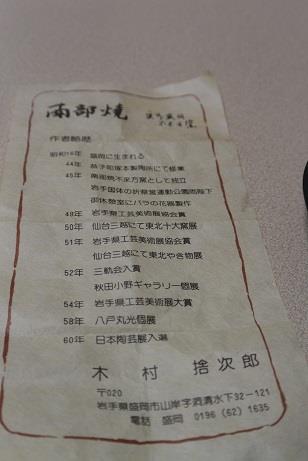 南部焼
作者略歴
昭和16年 盛岡に生まれる
44年 益子和塚本製陶所にて修業
45年 南部焼不来方窯として成立
岩手国体の折県営運動公園陛下
御休憩室にバラの花器製作
49年 岩手県工芸美術展協会賞
50年 仙台三越にて東北十大窯展
51年 岩手県工芸美術展協会賞
仙台三越にて東北やき物展
52年 三軌会入賞
秋田小野ギャラリー個展
54年 岩手県工芸美術展大賞
58年 八戸丸光個展
60年 日本陶芸展入選
木村 捨次郎
〒020
岩手県盛岡市山岸字洒清水下32-121
電話 盛岡 0196(62)1635